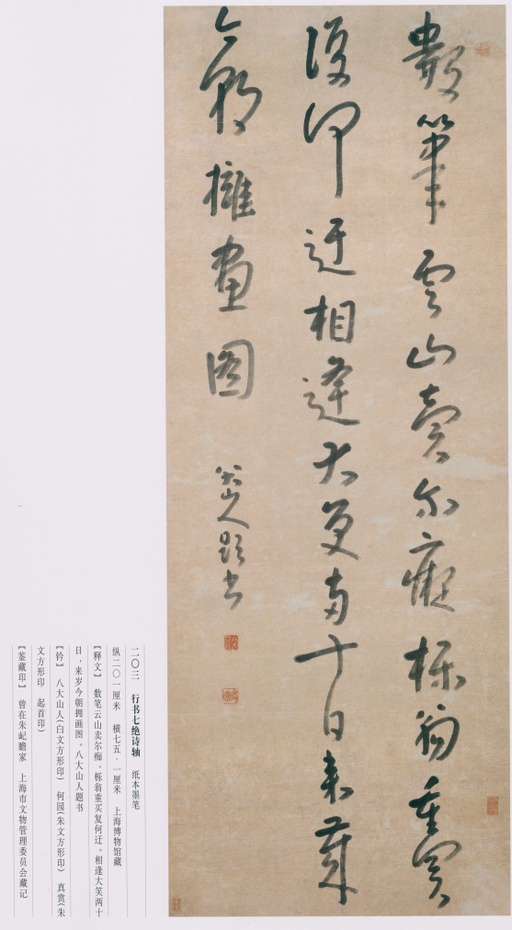 數筆雲山賣爾癡櫟翁重買
復何迂相逢大笑兩十日來歲
今朝擁畫圖
八大山人題書
二〇三 行书七绝诗轴 纸本墨笔
纵二〇一厘米 横七五·一厘米 上海博物馆藏
【释文】 数笔云山卖尔痴，栎翁重买复何迂。相逢大笑两十
日，来岁今朝拥画图。八大山人题书
【钤】 八大山人(白文方形印) 何园(朱文方形印) 真赏(朱
文方形印 起首印)
【鉴藏印】 曾在朱屺瞻家 上海市文物管理委员会藏记